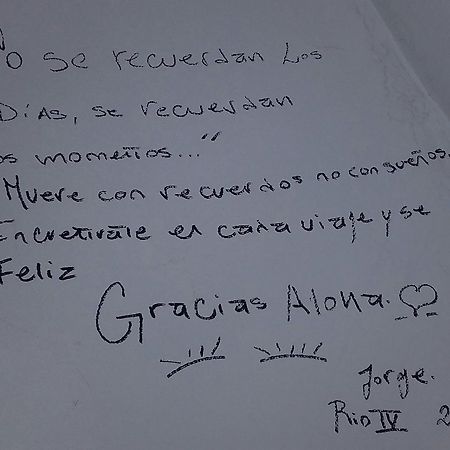 No se recuerdan Los
Días, se recuerdan
os momentos..."
Muere con recuerdos no con sueños.
en cada viaje y se
Feliz
Gracias Alona.
Jorge.
Rio IV 2